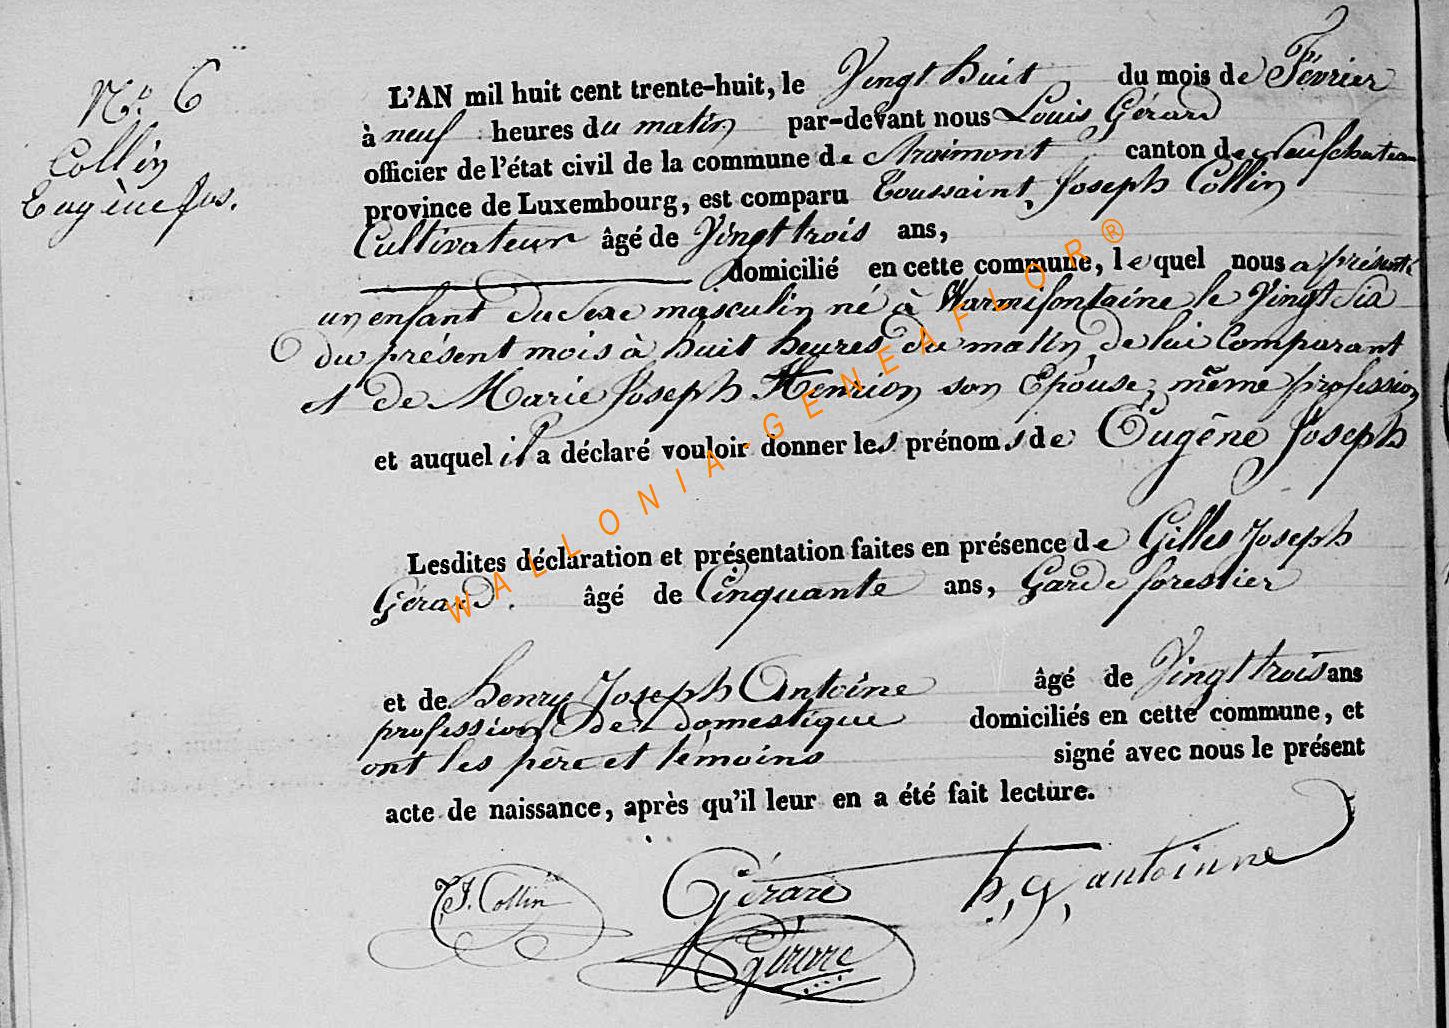 N.° 6
Collin
Eugène Jos.
L'AN mil huit cent trente-huit, le Vingt huit du mois de Février
à neuf heures du matin par-devant nous Louis Gérard
officier de l'état civil de la commune de Straimont canton de Neufchateau
province de Luxembourg, est comparu Toussaint Joseph Collin
Cultivateur âgé de Vingt trois ans,
domicilié en cette commune, lequel nous a présenté
un enfant du sexe masculin né à Warmifontaine le Vingt six
du présent mois à huit heures du matin, de lui Comparant
et de Marie Joseph Henrion son Epouse, même profession
et auquel il a déclaré vouloir donner les prénoms de Eugêne Joseph
Lesdites déclaration et présentation faites en présence de Gilles Joseph
Gérard. âgé de Cinquante ans, Garde forestier
et de henry Joseph Antoine âgé de Vingt trois ans
profession de domestique domiciliés en cette commune, et
ont les père et témoins signé avec nous le présent
acte de naissance, après qu'il leur en a été fait lecture.
T.J. Collin Gérard h, j, antoinne
Gérard
WALLONIA-GENEAFLOR®